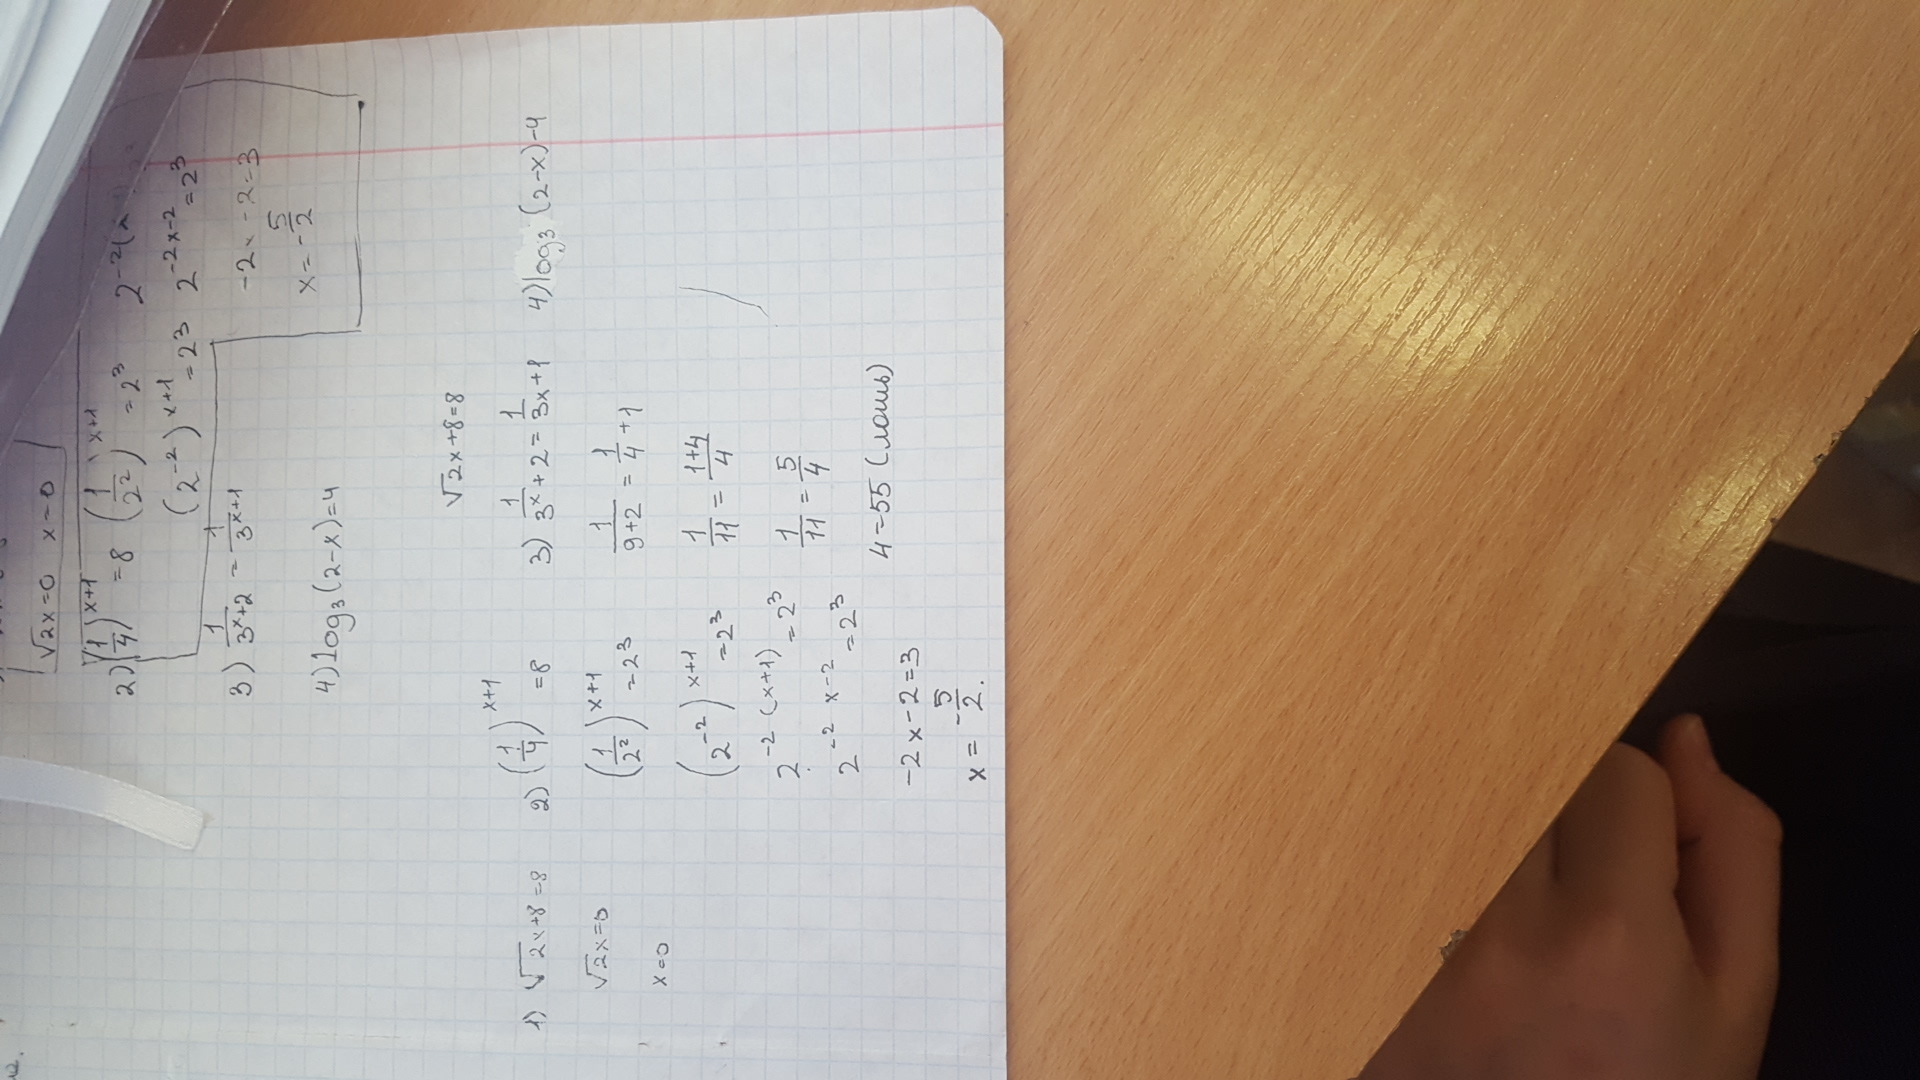 √2x=0 x=0
2) (1/4)^(x+1) =8 (1/2²)^(x+1) =2³
(2⁻²)^(x+1) =2³ 2^(-2x-2) =2³
-2x-2=3
x=-5/2
3) 1/(3^x+2) = 1/3^(x+1)
4) log₃(2-x)=4
√2x+8=8
1) √2x+8=8
√2x=0
x=0
2) (1/4)^(x+1) =8
(1/2²)^(x+1) =2³
(2⁻²)^(x+1) =2³
2^(-2(x+1)) =2³
2^(-2x-2) =2³
-2x-2=3
x=-5/2.
3) 1/3^x+2=1/3x+1
1/(9+2)=1/4+1
1/11=(1+4)/4
1/11=5/4
4=55 (ложь)
4) log₃(2-x)-4